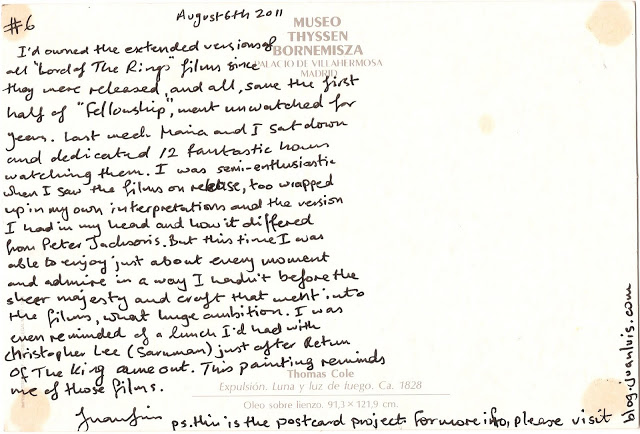 #6
August 6th 2011
MUSEO
THYSSEN
BORNEMISZA
PALACIO DE VILLAHERMOSA
MADRID
I'd owned the extended versions of
all "Lord of The Rings" films since
they were released, and all, save the first
half of "Fellowship", went unwatched for
years. Last week Maria and I sat down
and dedicated 12 fantastic hours
watching them. I was semi-enthusiastic
when I saw the films on release, too wrapped
up in my own interpretations and the version
I had in my head and how it differed
from Peter Jackson's. But this time I was
able to enjoy just about every moment
and admire in a way I hadn't before the
sheer majesty and craft that went into
the films, what huge ambition. I was
even reminded of a lunch I'd had with
Christopher Lee (Saruman) just after Return
Of The King came out. This painting reminds
me of those films.
Thomas Cole
Expulsión. Luna y luz de fuego. Ca. 1828
Oleo sobre lienzo. 91,3 x 121,9 cm.
Juanluis
ps. this is the postcard project. For more info, please visit
blog.joanluis.com